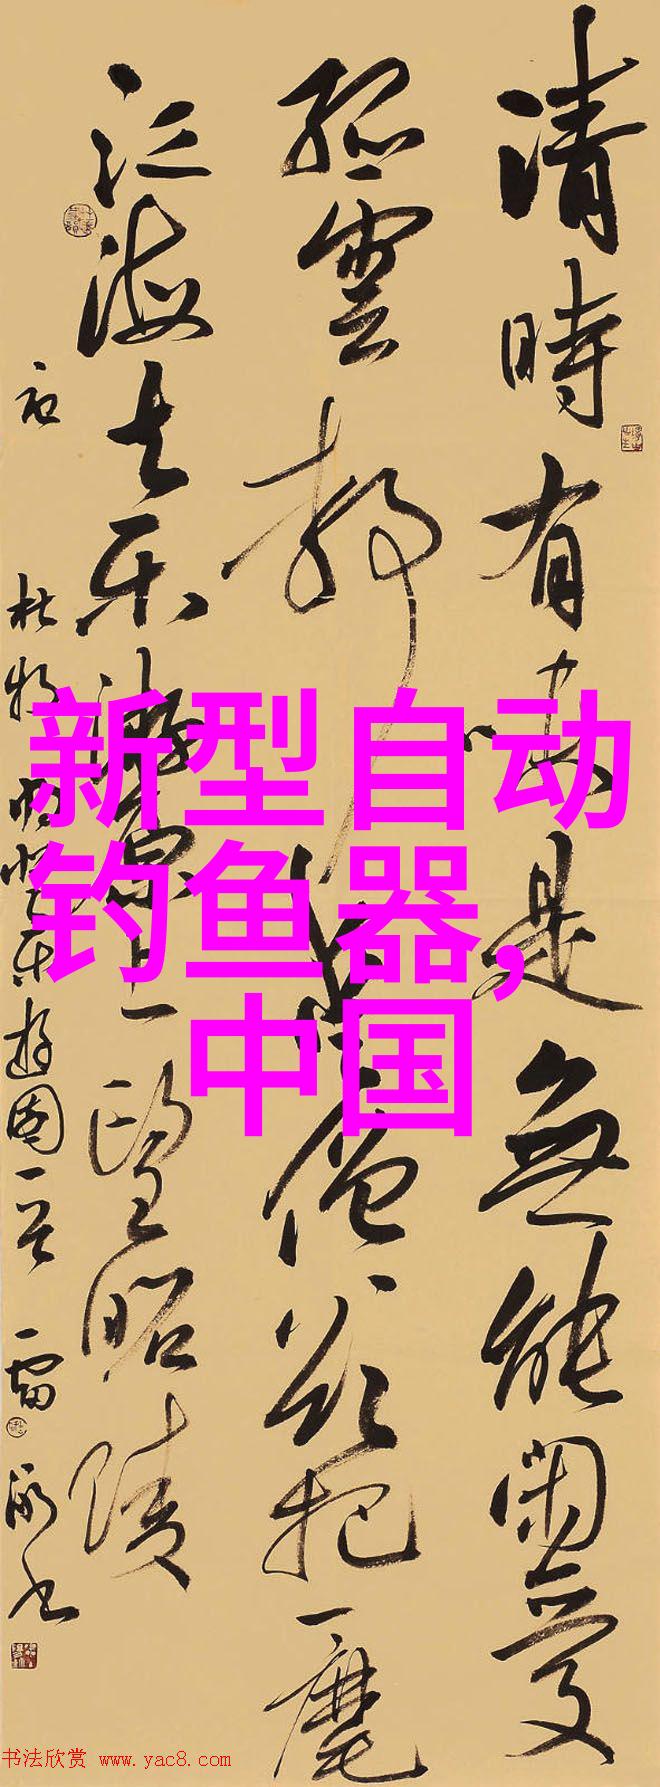 清時有味是無能閑愛
孤雲靜愛僧欲把一麾
江海去樂游原上望昭陵
右
杜牧將赴吴興樂游原一絕
書法欣赏 www.yac8.com
新型自动
钓鱼器，
中国